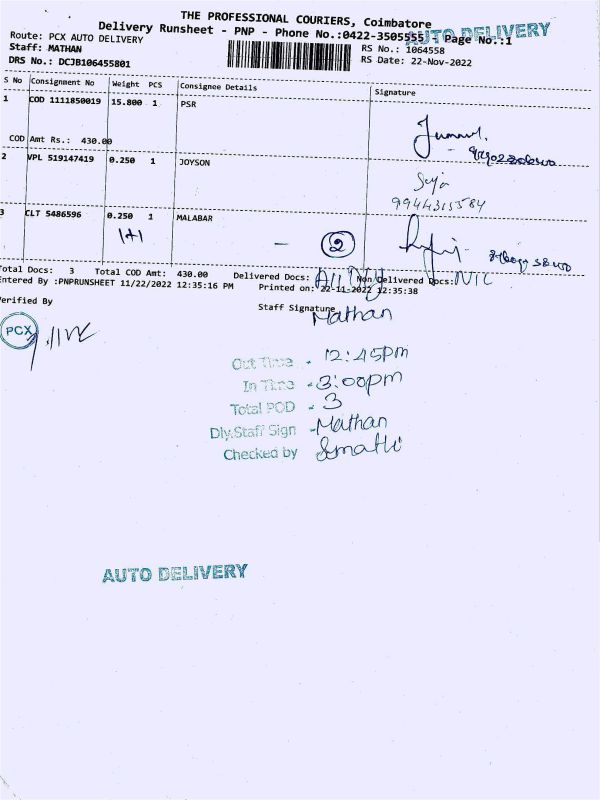 THE PROFESSIONAL COURIERS, Coimbatore
Delivery Runsheet - PNP - Phone No.:0422-3505555 Page No.:1
AUTO DELIVERY
Route: PCX AUTO DELIVERY
RS No.: 1064558
Staff: MATHAN
RS Date: 22-Nov-2022
DRS No.: DCJB106455801
S No Consignment No Weight PCS Consignee Details Signature
1 COD 1111850019 15.800 1 PSR
COD Amt Rs.: 430.00
2 VPL 519147419 0.250 1 JOYSON
3 CLT 5486596 0.250 1 MALABAR
1+1 - 2
Total Docs: 3 Total COD Amt: 430.00 Delivered Docs: All Dly Non Delivered Docs: NIL
Entered By :PNPRUNSHEET 11/22/2022 12:35:16 PM Printed on: 22-11-2022 12:35:38
Verified By Staff Signature
Mathan
PCX
Out Time - 12:45pm
In Time - 3:00pm
Total POD - 3
Dly.Staff Sign - Mathan
Checked by
AUTO DELIVERY